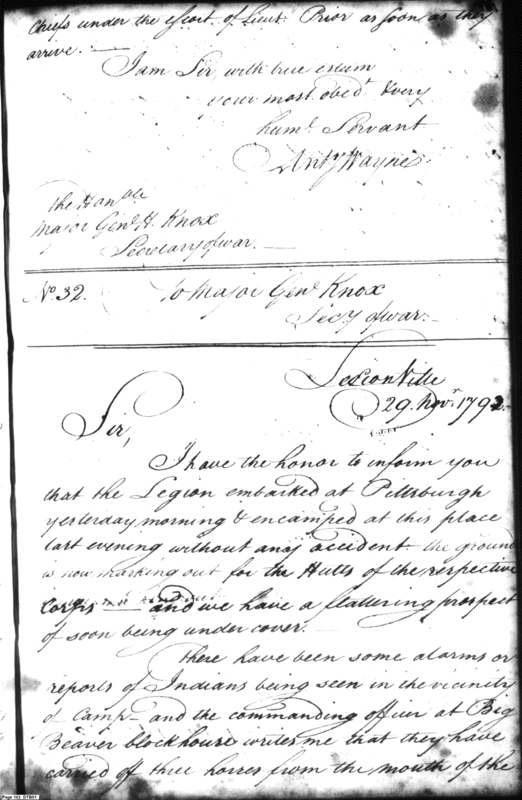 Chiefs under the escort of Lieut. Prior as soon as they
arrive. —
I am Sir, with true esteem
your most obed.t & very
hum.l Servant
Ant.y Wayne
The Hon.ble
Major Gen.l H. Knox
Secretary of war. —
N.o 32. To Major Gen.l Knox
Sec.y of war. —
Legion Ville
29. Nov.r 1792
Sir,
I have the honor to inform you
that the Legion embarked at Pittsburgh
yesterday morning & encamped at this place
last evening without any accident the ground
is now marking out for the Hutts of the respective
Corps — and we have a flattering prospect
of soon being under cover. —
There have been some alarms or
reports of Indians being seen in the vicinity
of Camp — and the commanding officer at Big
Beaver blockhouse writes me that they have
carried off three horses from the mouth of the
Page 143 DTB01